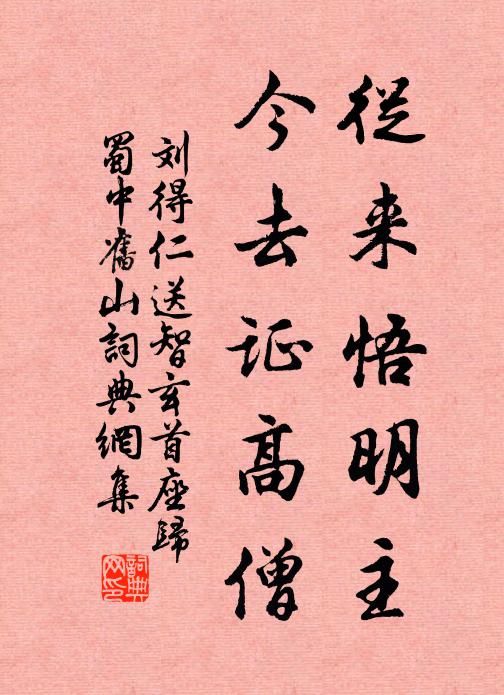 從来悟明主
今去证高僧
刘得仁送智玄首座歸
蜀中舊山詞典網集
詞典
网印